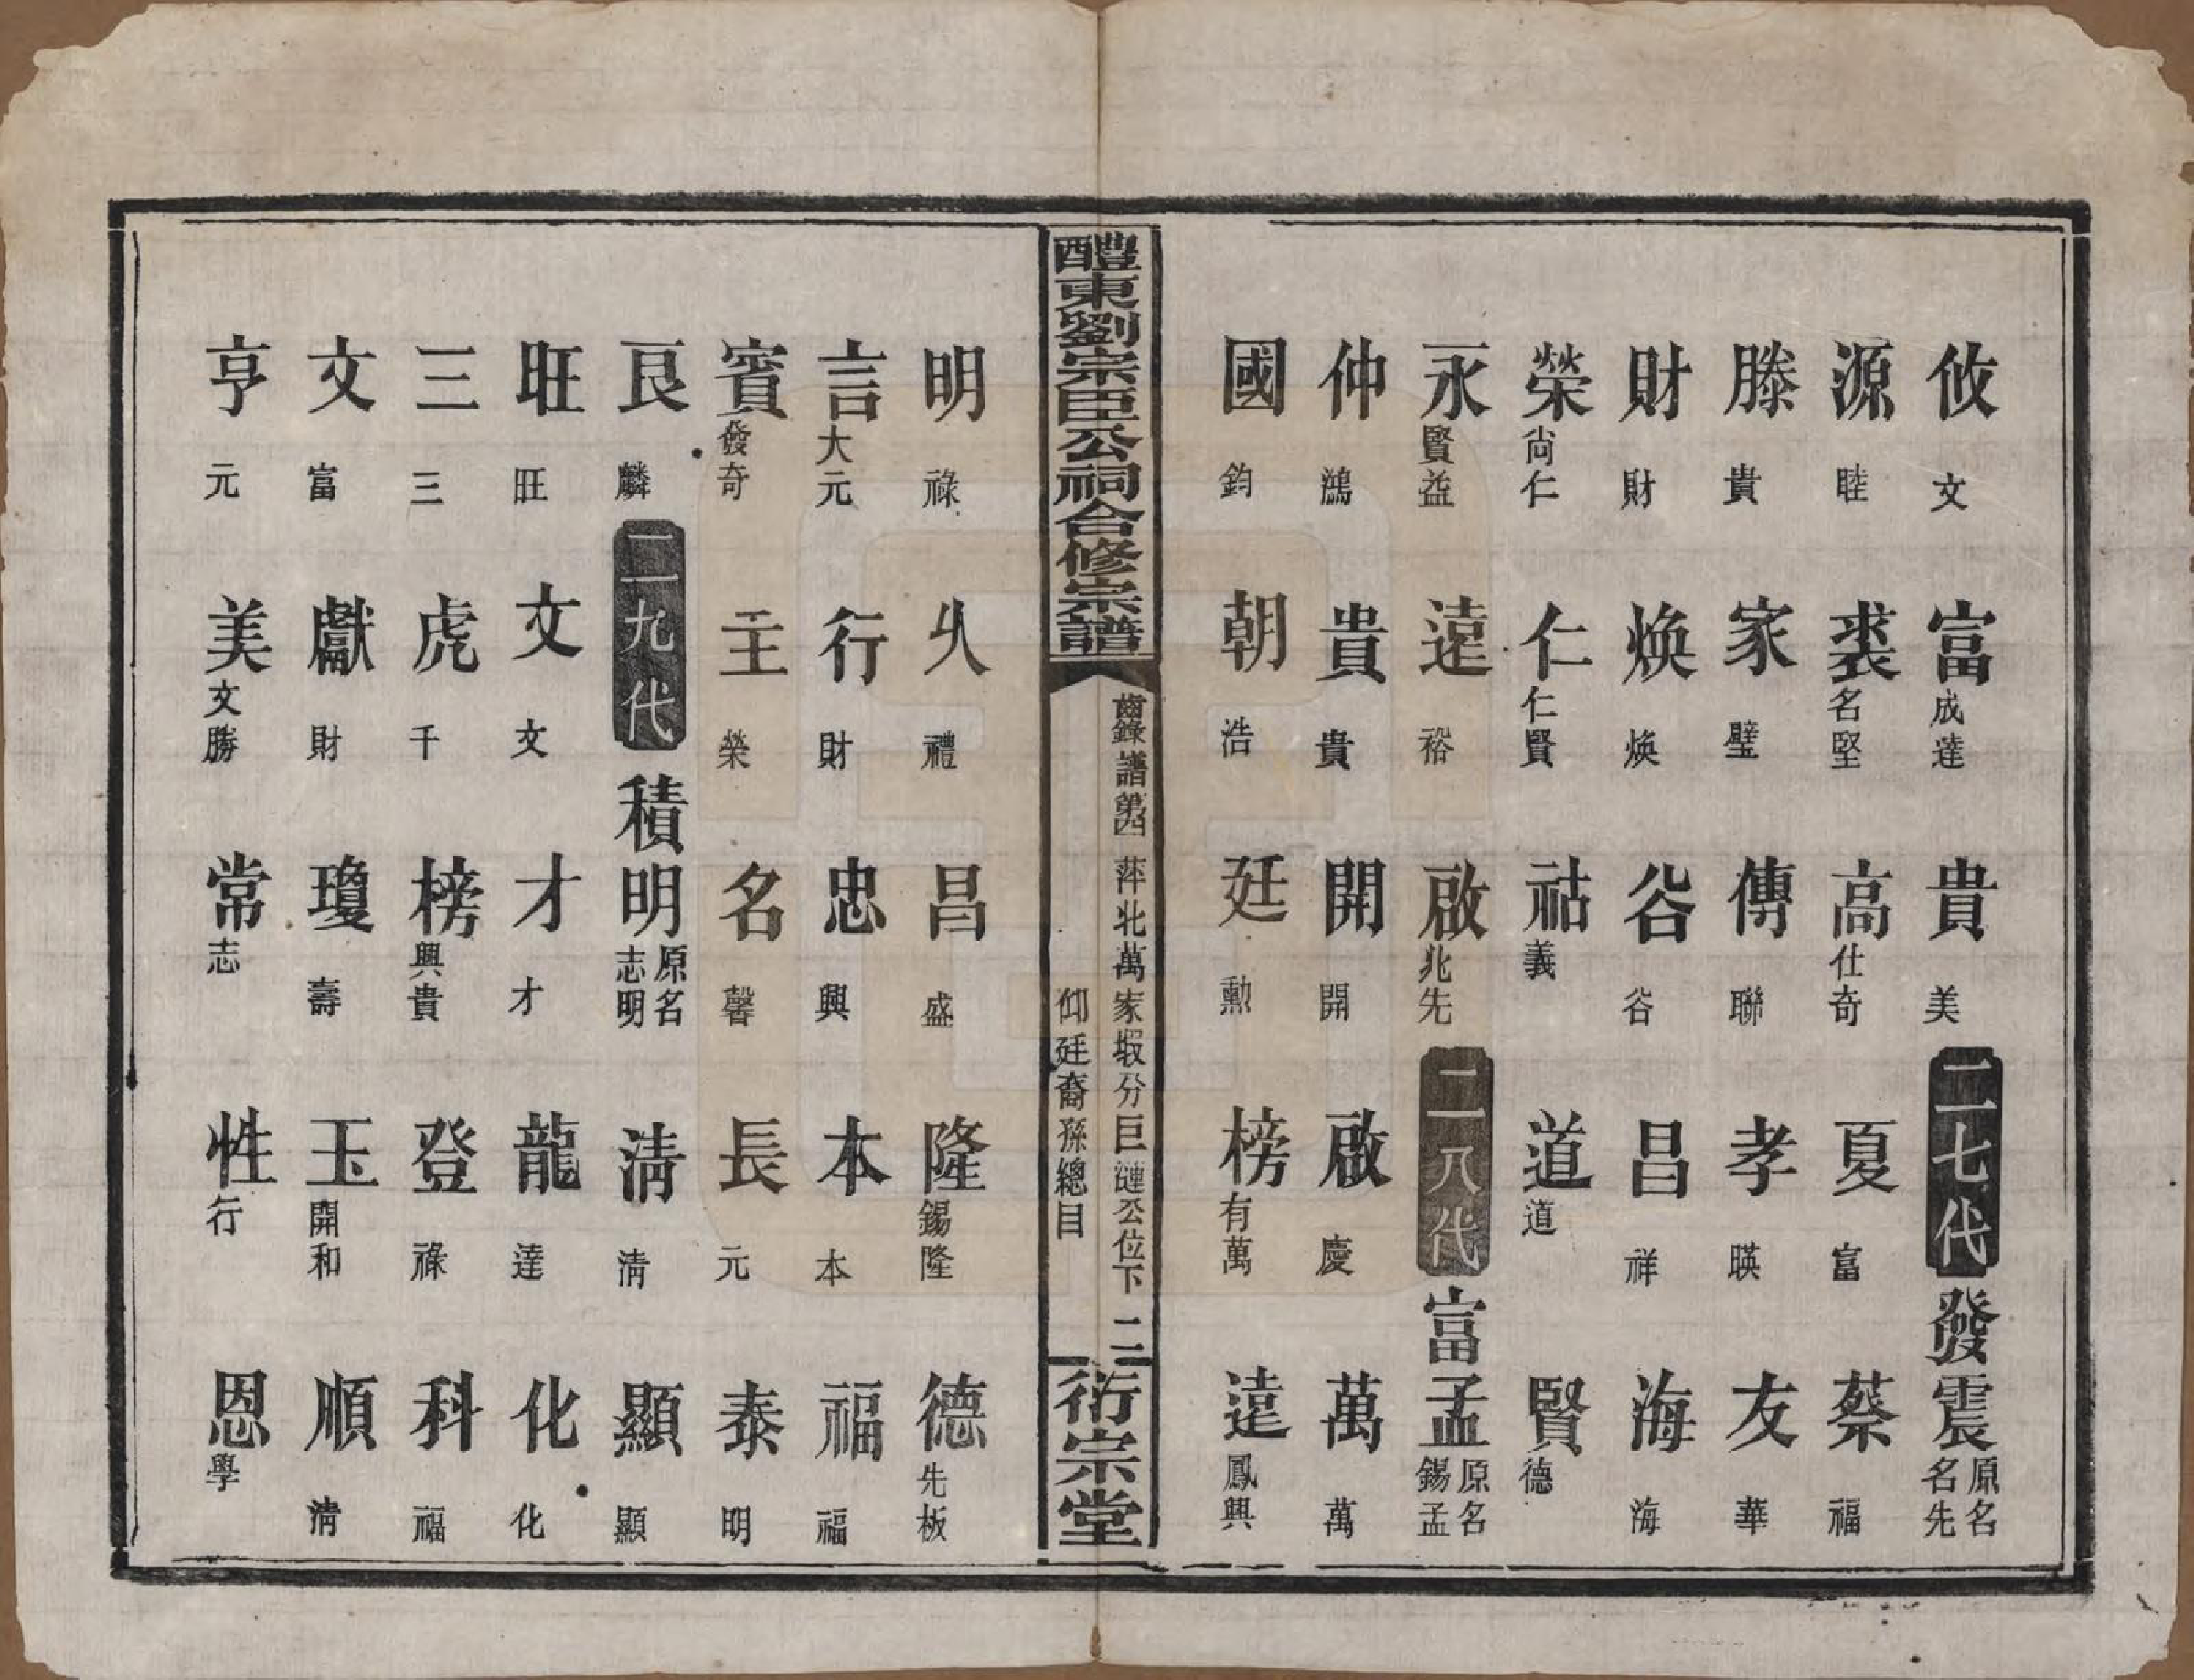 攸文 富成達 貴美 二七代 發震原名名先
源睦 裘名堅 高仕奇 夏富 蔡福
滕貴 家璧 傳聯 孝暎 友華
財財 煥煥 谷谷 昌祥 海海
榮尙仁 仁仁賢 祜義 道道 賢德
永賢益 遠裕 啟兆先 二八代 富孟原名錫孟
仲鴻 貴貴 開開 啟慶 萬萬
國鈞 朝浩 廷勲 榜有萬 遠鳳興
醴東劉宗臣公祠合修宗譜
齒錄譜第四 萍北萬家塅分巨漣公位下
仰廷裔孫總目
二
衍宗堂
明祿 久禮 昌盛 隆錫隆 德先板
言大元 行財 忠興 本本 福福
賓發奇 主榮 名馨 長元 泰明
良麟 二九代 積明原名志明 清清 顯顯
旺旺 文文 才才 龍達 化化
三三 虎千 榜興貴 登祿 科福
文富 獻財 瓊壽 玉開和 順清
亨元 美文勝 常志 性行 恩學